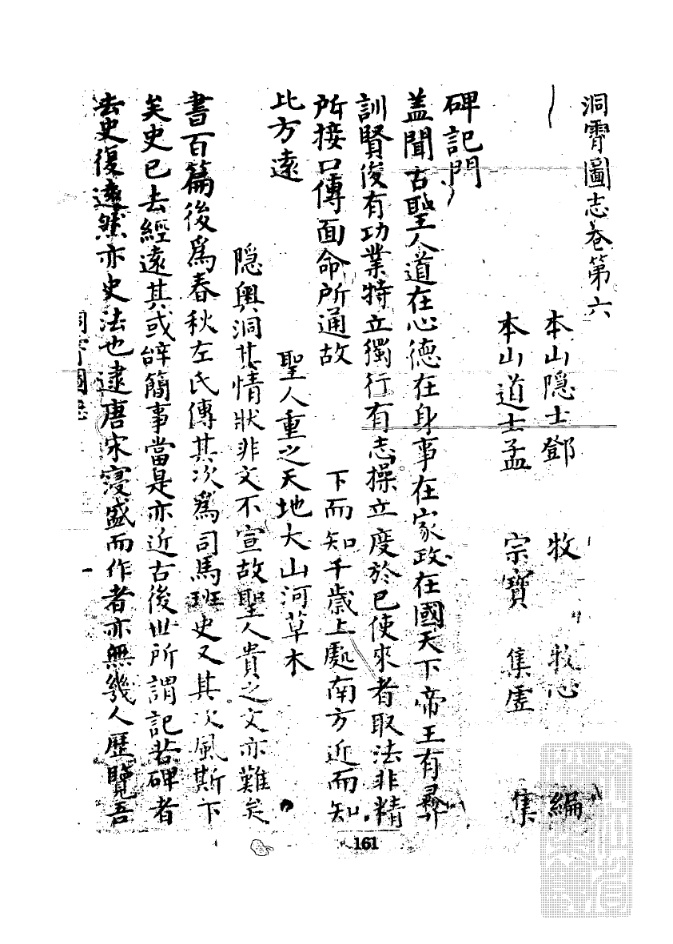 洞霄圖志卷第六
本山隐士鄧 牧 牧心 編
本山道士孟 宗寶 集虛 集
碑記門
盖聞古聖人道在心德在身事在家政在國天下帝王有彞
訓賢俊有功業特立獨行有志操立度於已使來者取法非精
所接口傳面命所通故 下而知千歲上處南方近而知
比方遠 聖人重之天地大山河草木
隠奥洞其情狀非文不宣故聖人貴之文亦難矣
書百篇後爲春秋左氏傳其次爲司馬班史又其次風斯下
矣史已去經遠其或辝簡事當是亦近古後世所謂記若碑者
去史復遠然亦史法也逮唐宋寖盛而作者亦無幾人歷覽吾
洞霄圖志
161